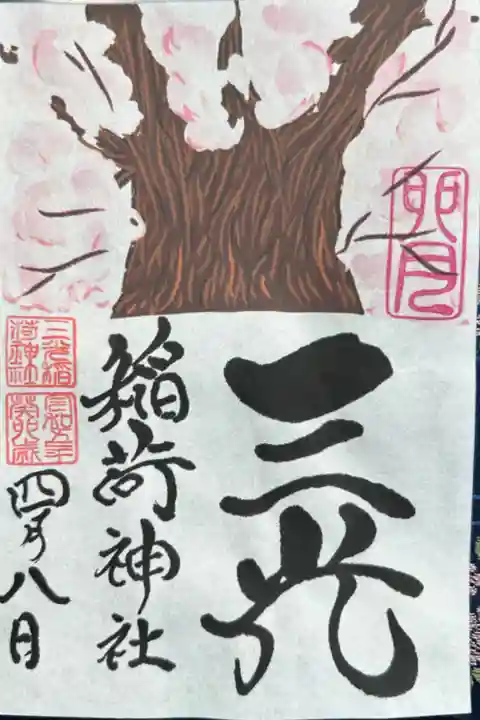 卯月
三光
稲荷神社
三光稲
荷神社
四月八日